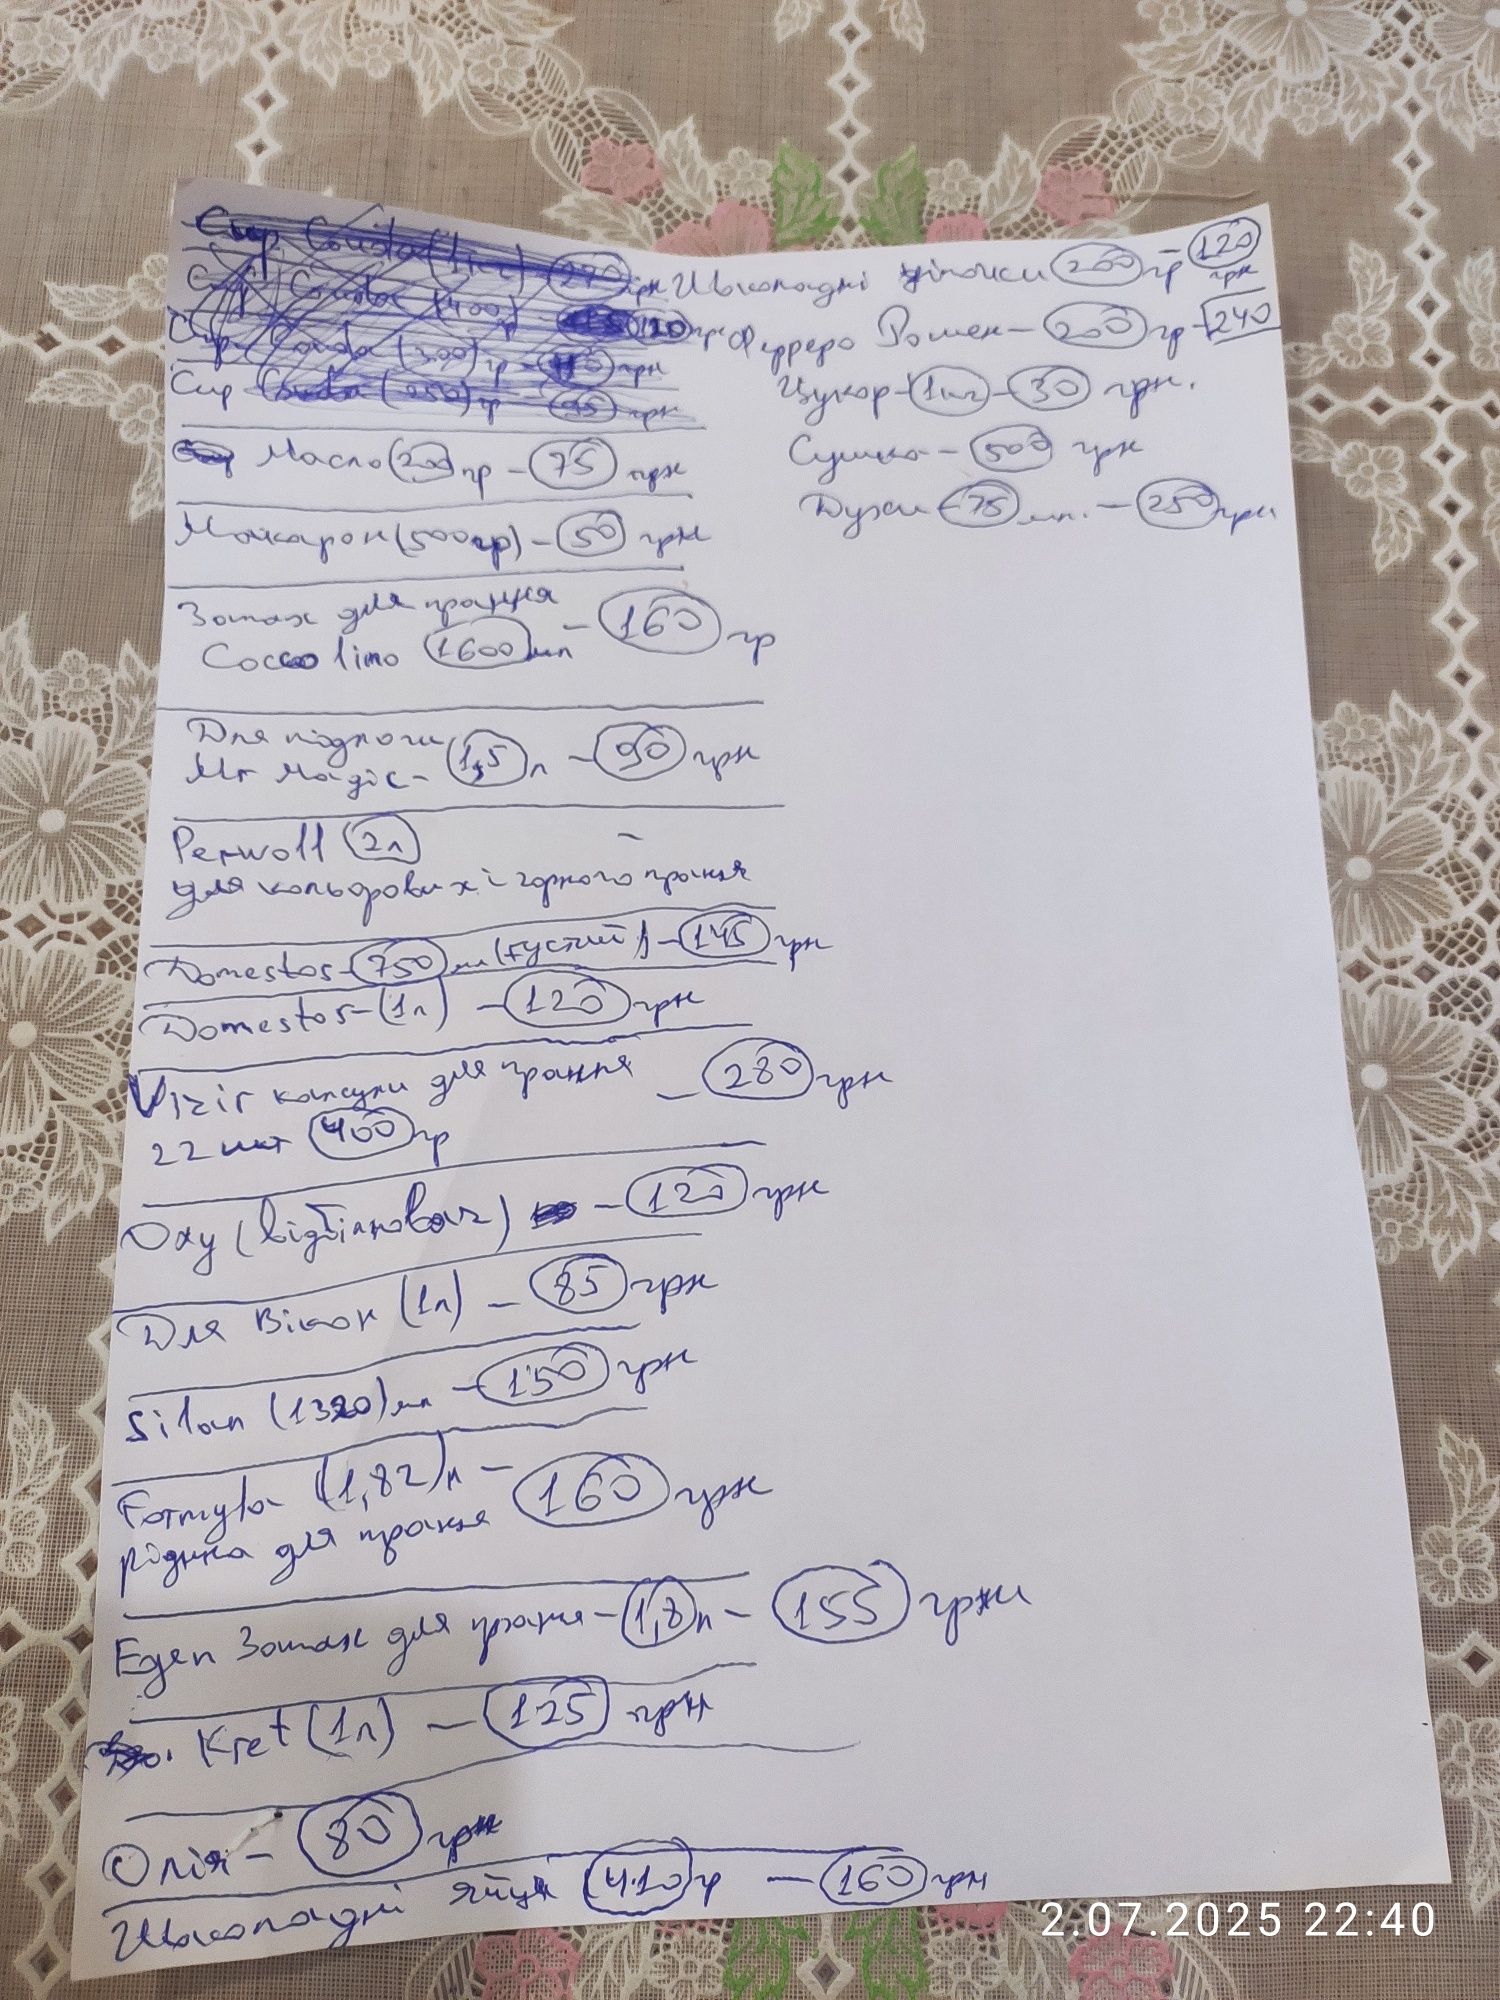 Сир Gouda (1кг) 270 грн
Сир Gouda (400)гр - 120 гр
Сир Gouda (300)гр - 110 грн
Сир Gouda (250)гр - 95 грн
Масло (200)гр - 75 грн
Макарон (500гр) - 50 грн
Зопах для прання
Coccolino 1600 мл - 160 гр
Для підлоги
Mr Magic - 1,5 л - 90 грн
Perwoll 2л -
для кольорових і чорного прання
Domestos - 750 мл (густий) - 145 грн
Domestos - (1л) - 120 грн
Vizir капсули для прання - 280 грн
22 шт 400 гр
Oxy (відбілювач) - 120 грн
Для вікон (1л) - 85 грн
Silan (1320)мл - 150 грн
Formyla (1,82)л - 160 грн
рідина для прання
Eden Зопах для прання - 1,8 л - 155 грн
Kret (1л) - 125 грн
Олія - 80 грн
Шоколадні яйця 410 гр - 160 грн
Шоколадні 200 гр - 120 грн
Ферреро Рошен - 200 гр - 240
Цукор - 1кг - 30 грн.
Сушка - 500 грн
Духи - 75 мл. - 250 грн
2.07.2025 22:40